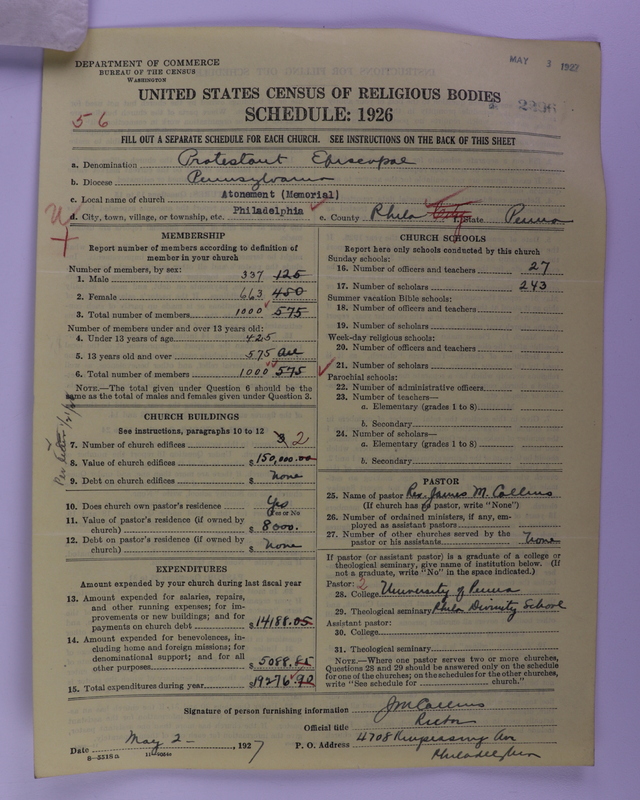 MAY 3 1927
DEPARTMENT OF COMMERCE
BUREAU OF THE CENSUS
WASHINGTON
UNITED STATES CENSUS OF RELIGIOUS BODIES
SCHEDULE: 1926
56
FILL OUT A SEPARATE SCHEDULE FOR EACH CHURCH. SEE INSTRUCTIONS ON THE BACK OF THIS SHEET
a. Denomination Protestant Episcopal
b. Diocese Pennsylvania
c. Local name of church Atonement (Memorial)
d. City, town, village, or township, etc. Philadelphia e. County Phila City f. State Penna
MEMBERSHIP
Report number of members according to definition of
member in your church
Number of members, by sex:
1. Male 337 125
2. Female 663 450
3. Total number of members 1000 575
Number of members under and over 13 years old:
4. Under 13 years of age 425
5. 13 years old and over 575 all
6. Total number of members 1000 575
NOTE.—The total given under Question 6 should be the
same as the total of males and females given under Question 3.
CHURCH BUILDINGS
See instructions, paragraphs 10 to 12
7. Number of church edifices 2
8. Value of church edifices $150,000.00
9. Debt on church edifices $ None
10. Does church own pastor's residence? Yes
Yes or No
11. Value of pastor's residence (if owned by
church) $ 8000.
12. Debt on pastor's residence (if owned by
church) $ None
EXPENDITURES
Amount expended by your church during last fiscal year
13. Amount expended for salaries, repairs,
and other running expenses; for im-
provements or new building; and for
payments on church debt $14188.05
14. Amount expended for benevolences, in-
cluding home and foreign missions; for
denominational support; and for all
other purposes $5088.85
15. Total expenditures during year $19276.90
CHURCH SCHOOLS
Report here only schools conducted by this church
Sunday schools:
16. Number of officers and teachers 27
17. Number of scholars 243
Summer vacation Bible schools:
18. Number of officers and teachers
19. Number of scholars
Week-day religious schools:
20. Number of officers and teachers
21. Number of scholars
Parochial schools:
22. Number of administrative officers
23. Number of teachers—
a. Elementary (grades 1 to 8)
b. Secondary
24. Number of scholars—
a. Elementary (grades 1 to 8)
b. Secondary
PASTOR
25. Name of pastor Rev. James M. Collins
(If church has no pastor, write "None")
26. Number of ordained ministers, if any, em-
ployed as assistant pastors
27. Number of other churches served by the
pastor or his assistants None
If pastor (or assistant pastor) is a graduate of a college or
theological seminary, give name of institution below. (If
not a graduate, write "No" in the space indicated.)
Pastor: 2
28. College University of Penna
29. Theological seminary Phila Divinity School
Assistant pastor:
30. College
31. Theological seminary
NOTE.—Where one pastor serves two or more churches,
Questions 28 and 29 should be answered only on the schedule
for one of the churches; on the schedules for the other churches,
write "See schedule for church."
Signature of person furnishing information J M Collins
Official title Rector
Date May 2, 1927 P. O. Address 4708 Kingsessing Av
Philadelphia
8—5518a